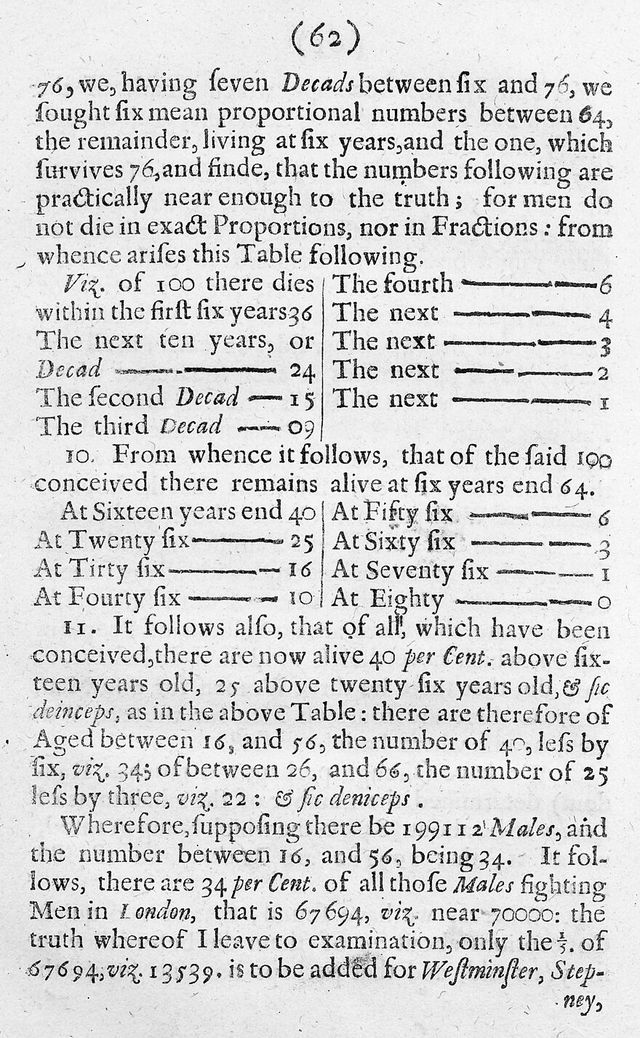 (62)
76, we, having ſeven Decads between ſix and 76, we
ſought ſix mean proportional numbers between 64,
the remainder, living at ſix years, and the one, which
ſurvives 76, and finde, that the numbers following are
practically near enough to the truth; for men do
not die in exact Proportions, nor in Fractions: from
whence ariſes this Table following.
Viz. of 100 there dies
within the firſt ſix years 36
The next ten years, or
Decad —— 24
The ſecond Decad — 15
The third Decad —— 09
The fourth —— 6
The next —— 4
The next —— 3
The next —— 2
The next —— 1
10. From whence it follows, that of the ſaid 100
conceived there remains alive at ſix years end 64.
At Sixteen years end 40
At Twenty ſix —— 25
At Tirty ſix —— 16
At Fourty ſix —— 10
At Fifty ſix —— 6
At Sixty ſix —— 3
At Seventy ſix —— 1
At Eighty —— 0
11. It follows alſo, that of all, which have been
conceived, there are now alive 40 per Cent. above ſix-
teen years old, 25 above twenty ſix years old, & ſic
deinceps, as in the above Table: there are therefore of
Aged between 16, and 56, the number of 40, leſs by
ſix, viz. 34; of between 26, and 66, the number of 25
leſs by three, viz. 22: & ſic deniceps.
Wherefore, ſuppoſing there be 199112 Males, and
the number between 16, and 56, being 34. It fol-
lows, there are 34 per Cent. of all thoſe Males fighting
Men in London, that is 67694, viz. near 70000: the
truth whereof I leave to examination, only the ⅕. of
67694, viz. 13539. is to be added for Weſtminſter, Step-
ney,